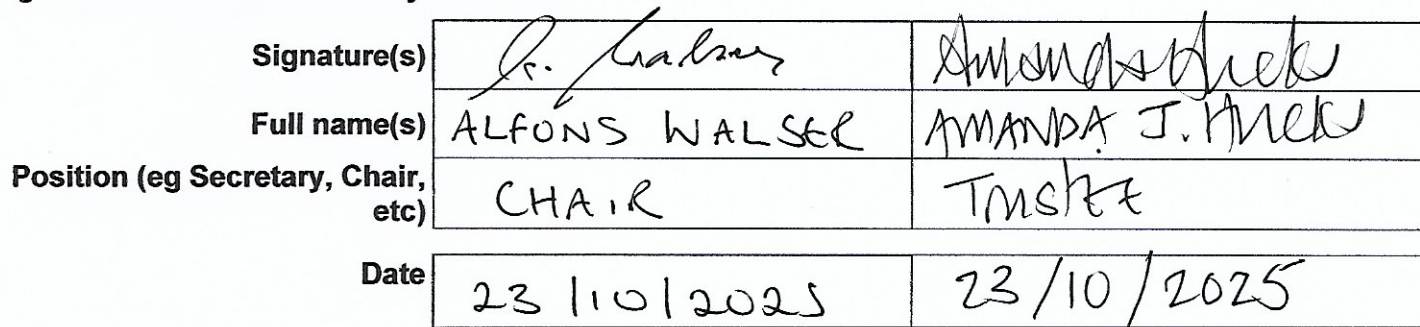 Signature(s)
Full name(s) ALFONS WALSER AMANDA J.
Position (eg Secretary, Chair, etc) CHAIR Trustee
Date 23/10/2025 23/10/2025